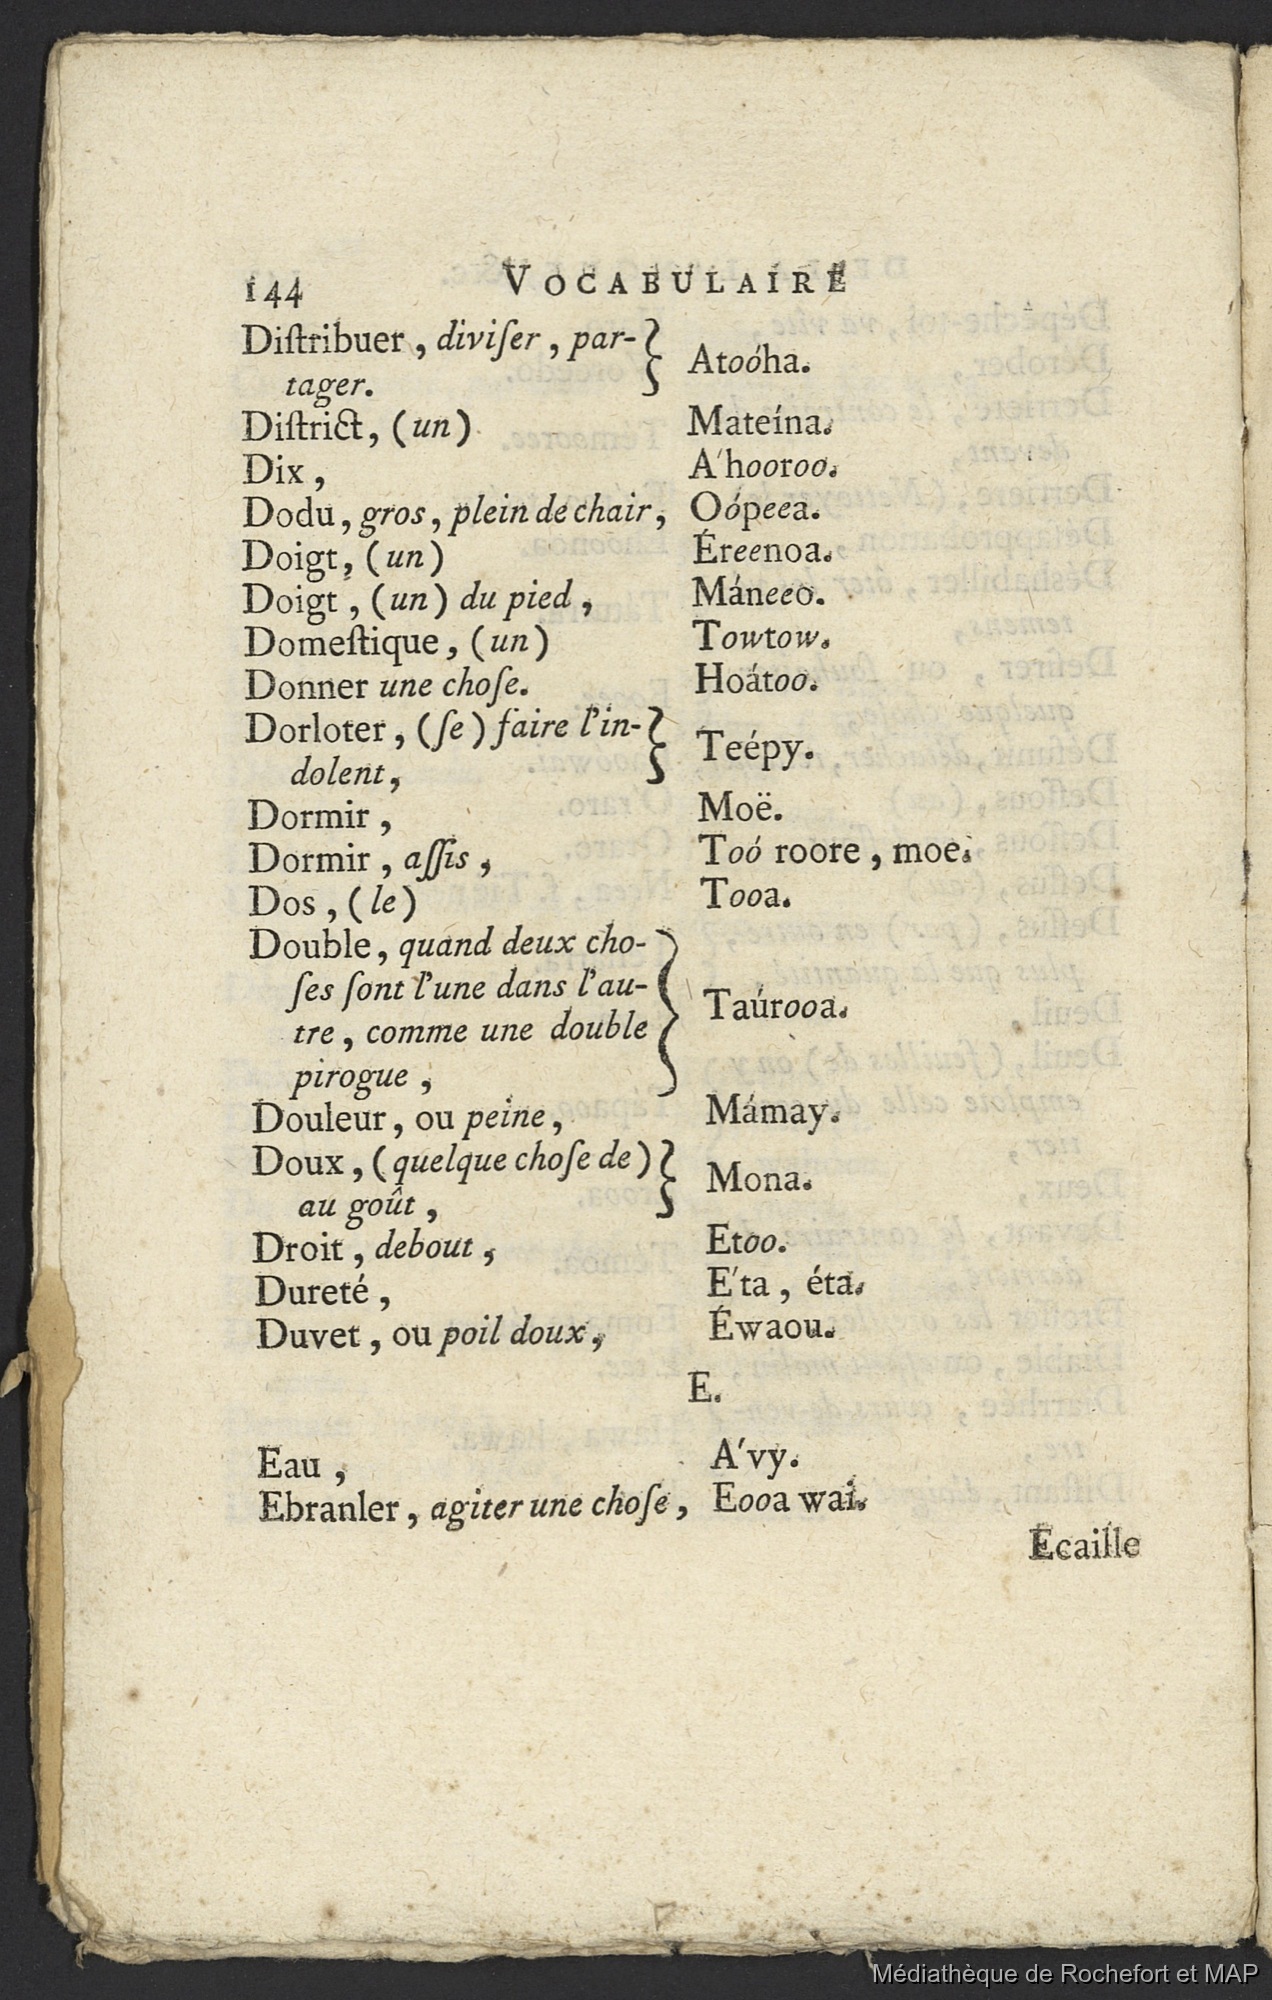 144 VOCABULAIRE
Diſtribuer, diviſer, par-
tager. } Atoóha.
Diſtrict, (un) Mateína.
Dix, A'hooroo.
Dodu, gros, plein de chair, Oópeea.
Doigt, (un) Éreenoa.
Doigt, (un) du pied, Máneeo.
Domeſtique, (un) Towtow.
Donner une choſe. Hoátoo.
Dorloter, (ſe) faire l'in-
dolent, } Teépy.
Dormir, Moë.
Dormir, aſſis, Toó roore, moe.
Dos, (le) Tooa.
Double, quand deux cho-
ſes ſont l'une dans l'au-
tre, comme une double } Taúrooa.
pirogue,
Douleur, ou peine, Mámay.
Doux, (quelque choſe de)
au goût, } Mona.
Droit, debout, Etoo.
Dureté, E'ta, éta.
Duvet, ou poil doux, Éwaou.
E.
Eau, A'vy.
Ebranler, agiter une choſe, Eooa wai.
Ecaille
Médiathèque de Rochefort et MAP